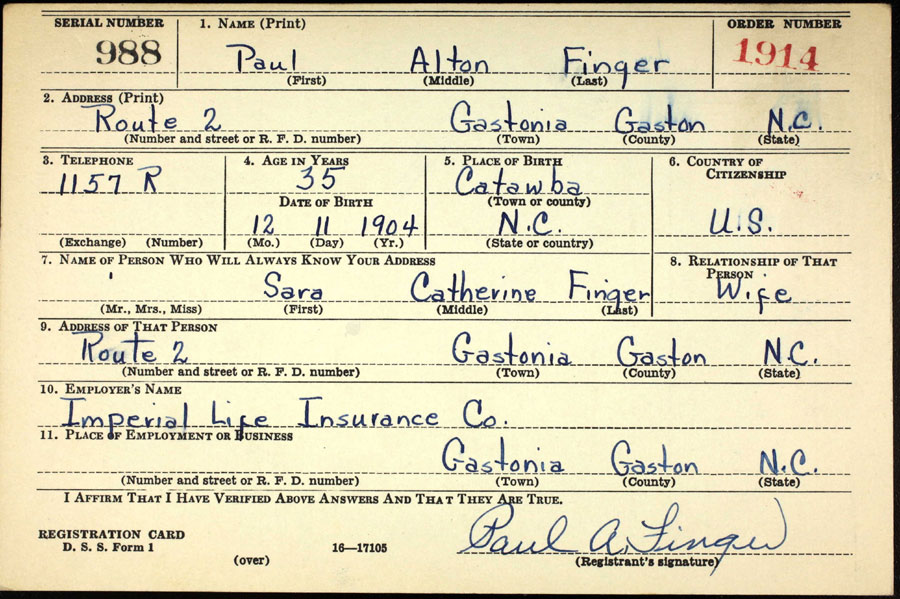 SERIAL NUMBER 1. NAME (Print) ORDER NUMBER
988 Paul Alton Finger 1914
(First) (Middle) (Last)
2. ADDRESS (Print)
Route 2 Gastonia Gaston N.C.
(Number and street or R. F. D. number) (Town) (County) (State)
3. TELEPHONE 4. AGE IN YEARS 5. PLACE OF BIRTH 6. COUNTRY OF CITIZENSHIP
1157 R 35 Catawba
DATE OF BIRTH (Town or county)
12 11 1904 N.C. U.S.
(Exchange) (Number) (Mo.) (Day) (Yr.) (State or country)
7. NAME OF PERSON WHO WILL ALWAYS KNOW YOUR ADDRESS 8. RELATIONSHIP OF THAT PERSON
Sara Catherine Finger Wife
(Mr., Mrs., Miss) (First) (Middle) (Last)
9. ADDRESS OF THAT PERSON
Route 2 Gastonia Gaston N.C.
(Number and street or R. F. D. number) (Town) (County) (State)
10. EMPLOYER'S NAME
Imperial Life Insurance Co.
11. PLACE OF EMPLOYMENT OR BUSINESS
Gastonia Gaston N.C.
(Number and street or R. F. D. number) (Town) (County) (State)
I AFFIRM THAT I HAVE VERIFIED ABOVE ANSWERS AND THAT THEY ARE TRUE.
Paul A. Finger
REGISTRATION CARD
D. S. S. Form 1 16—17105
(over) (Registrant's signature)